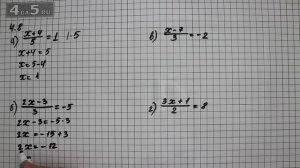 4.5.RU
4.8
а) x+4/5 = 1 |·5
x+4=5
x=5-4
x=1
б) 2x-3/3 = -5
2x-3=-5·3
2x=-15+3
2x=-12
в) x-7/3 = -2
г) 3x+1/2 = 8